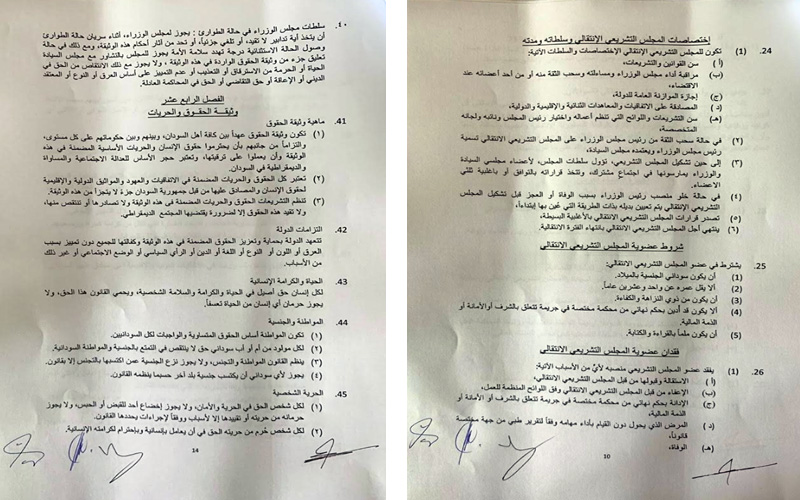 ٤٠. سلطات مجلس الوزراء في حالة الطوارئ : يجوز لمجلس الوزراء، أثناء سريان حالة الطوارئ
أن يتخذ أية تدابير لا تقيد، أو تلغي جزئياً، أو تحد من آثار أحكام هذه الوثيقة، ومع ذلك في حالة
وصول الحالة الاستثنائية درجة تهدد سلامة الأمة يجوز للمجلس بالتشاور مع مجلس السيادة
تعليق جزء من وثيقة الحقوق الواردة في هذه الوثيقة ، ولا يجوز مع ذلك الانتقاص من الحق في
الحياة أو الحرمة من الاسترقاق أو التعذيب أو عدم التمييز على أساس العرق أو النوع أو المعتقد
الديني أو الإعاقة أو حق التقاضي أو الحق في المحاكمة العادلة.
الفصل الرابع عشر
وثيقة الحقوق والحريات
41. ماهية وثيقة الحقوق
(١) تكون وثيقة الحقوق عهداً بين كافة أهل السودان، وبينهم وبين حكوماتهم على كل مستوى،
والتزاماً من جانبهم بأن يحترموا حقوق الإنسان والحريات الأساسية المضمنة في هذه
الوثيقة وأن يعملوا على ترقيتها، وتعتبر حجر الأساس للعدالة الاجتماعية والمساواة
والديمقراطية في السودان.
(٢) تعتبر كل الحقوق والحريات المضمنة في الاتفاقيات والعهود والمواثيق الدولية والإقليمية
لحقوق الإنسان والمصادق عليها من قبل جمهورية السودان جزء لا يتجزأ من هذه الوثيقة.
(٣) تنظم التشريعات الحقوق والحريات المضمنة في هذه الوثيقة ولا تصادرها أو تنتقص منها،
ولا تقيد هذه الحقوق إلا لضرورة يقتضيها المجتمع الديمقراطي.
42. التزامات الدولة
تتعهد الدولة بحماية وتعزيز الحقوق المضمنة في هذه الوثيقة وكفالتها للجميع دون تمييز بسبب
العرق أو اللون أو النوع أو اللغة أو الدين أو الرأي السياسي أو الوضع الاجتماعي أو غير ذلك
من الأسباب.
43. الحياة والكرامة الإنسانية
لكل إنسان حق أصيل في الحياة والكرامة والسلامة الشخصية، ويحمي القانون هذا الحق، ولا
يجوز حرمان أي إنسان من الحياة تعسفاً.
44. المواطنة والجنسية
(١) تكون المواطنة أساس الحقوق المتساوية والواجبات لكل السودانيين.
(٢) لكل مولود من أم أو أب سوداني حق لا ينتقص في التمتع بالجنسية والمواطنة السودانية.
(٣) ينظم القانون المواطنة والتجنس، ولا يجوز نزع الجنسية عمن اكتسبها بالتجنس إلا بقانون.
(٤) يجوز لأي سوداني أن يكتسب جنسية بلد آخر حسبما ينظمه القانون.
45. الحرية الشخصية
(١) لكل شخص الحق في الحرية والأمان، ولا يجوز إخضاع أحد للقبض أو الحبس، ولا يجوز
حرمانه من حريته أو تقييدها إلا لأسباب ووفقاً لإجراءات يحددها القانون.
(٢) لكل شخص حُرم من حريته الحق في أن يعامل بإنسانية وباحترام لكرامته الإنسانية.
14
إختصاصات المجلس التشريعي الانتقالي وسلطاته ومدته
24. (1) تكون للمجلس التشريعي الإنتقالي الإختصاصات والسلطات الآتية:
(أ ) سن القوانين والتشريعات،
(ب) مراقبة أداء مجلس الوزراء ومساءلته وسحب الثقة منه أو من أحد أعضائه عند
الاقتضاء،
(ج) إجازة الموازنة العامة للدولة،
(د ) المصادقة على الاتفاقيات والمعاهدات الثنائية والإقليمية والدولية،
(هـ) سن التشريعات واللوائح التي تنظم أعماله واختيار رئيس المجلس ونائبه ولجانه
المتخصصة،
(٢) في حالة سحب الثقة من رئيس مجلس الوزراء على المجلس التشريعي الانتقالي تسمية
رئيس مجلس الوزراء ويعتمده مجلس السيادة،
(٣) إلى حين تشكيل المجلس التشريعي، تؤول سلطات المجلس، لأعضاء مجلسي السيادة
والوزراء يمارسونها في اجتماع مشترك، وتتخذ قراراته بالتوافق أو باغلبية ثلثي
الاعضاء.
(٤) في حالة خلو منصب رئيس الوزراء بسبب الوفاة أو العجز قبل تشكيل المجلس
التشريعي الإنتقالي يتم تعيين بديله بذات الطريقة التي عين بها إبتداءاً،
(٥) تصدر قرارات المجلس التشريعي الانتقالي بالأغلبية البسيطة،
(٦) ينتهي أجل المجلس التشريعي الانتقالي بانتهاء الفترة الانتقالية.
شروط عضوية المجلس التشريعي الانتقالي
25. يشترط في عضو المجلس التشريعي الانتقالي:
(1) أن يكون سوداني الجنسية بالميلاد.
(2) ألا يقل عمره عن واحد وعشرين عاماً.
(3) أن يكون من ذوي النزاهة والكفاءة.
(4) ألا يكون قد أدين بحكم نهائي من محكمة مختصة في جريمة تتعلق بالشرف أوالأمانة أو
الذمة المالية.
(5) أن يكون ملماً بالقراءة والكتابة.
فقدان عضوية المجلس التشريعي الانتقالي
26. (1) يفقد عضو المجلس التشريعي منصبه لأيٍّ من الأسباب الآتية:
(أ ) الاستقالة وقبولها من قبل المجلس التشريعي الانتقالي،
(ب) الإعفاء من قبل المجلس التشريعي الانتقالي وفق اللوائح المنظمة للعمل،
(ج) الإدانة بحكم نهائي من محكمة مختصة في جريمة تتعلق بالشرف أو الأمانة أو
الذمة المالية،
(د ) المرض الذي يحول دون القيام بأداء مهامه وفقاً لتقرير طبي من جهة مختصة
قانوناً،
(هـ) الوفاة،
10